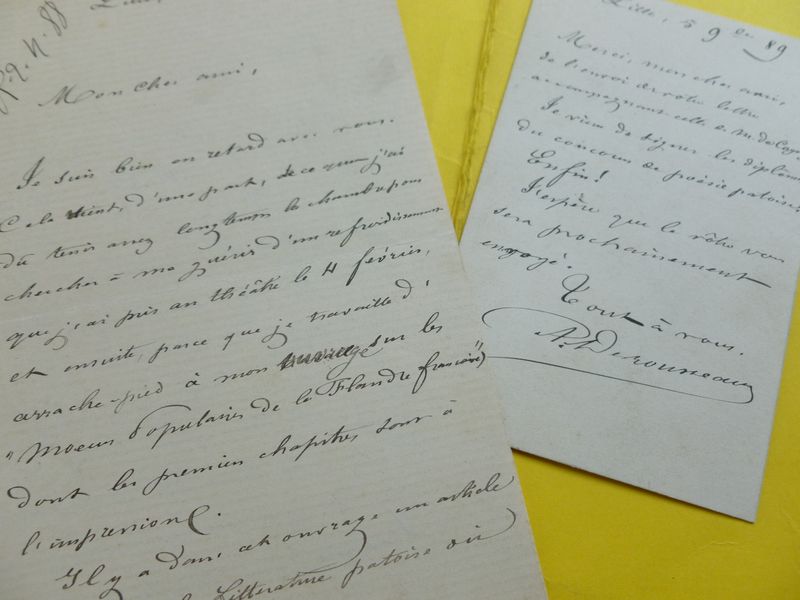 Mon cher ami,
Je suis bien en retard avec vous.
Cela vient, d'une part, de ce que j'ai
dû tenir assez longtemps la chambre pour
chercher à me guérir d'un refroidissement
que j'ai pris au théâtre le 4 février,
et ensuite, parce que je travaille d'
arrache-pied à mon ouvrage sur les
"Moeurs Populaires de la Flandre française"
dont les premiers chapitres sont à
l'impression.
Il y a dans cet ouvrage un article
Littérature patoise où
Lille, 9 89
Merci, mon cher ami,
de l'envoi de votre lettre
accompagnant celle de M.
Je viens de signer les diplômes
du concours de poésie patoise.
Enfin!
J'espère que le vôtre vous
sera prochainement
envoyé.
Tout à vous.
A. Desrousseaux